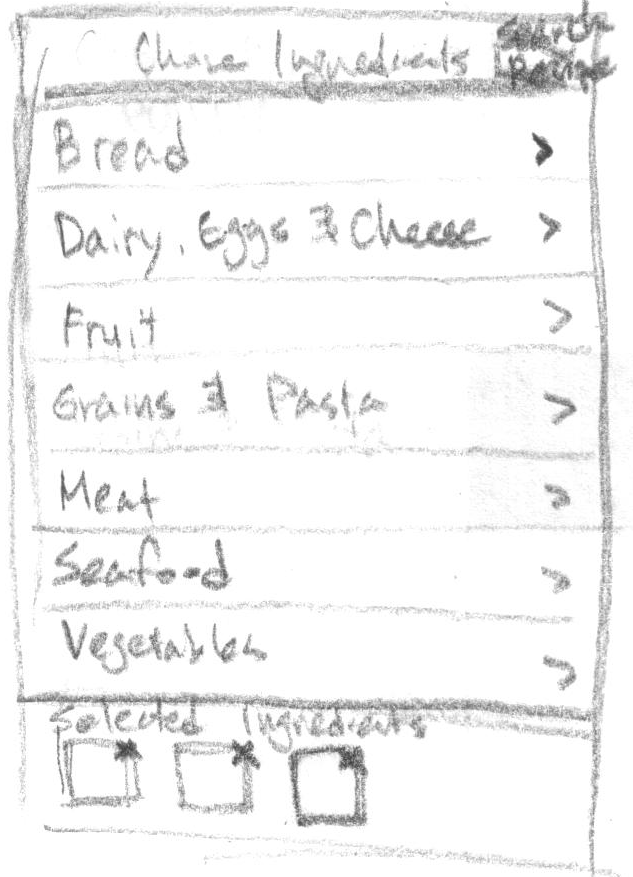 Choose Ingredients
Search
Recipe
Bread >
Dairy, Eggs & Cheese >
Fruit >
Grains & Pasta >
Meat >
Seafood >
Vegetables >
Selected Ingredients
x x x